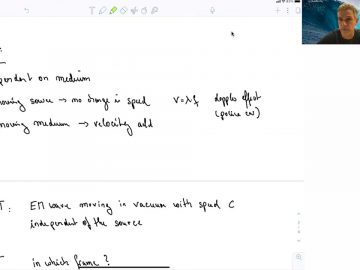 :
pendent on medium
moving source → no change in speed v = λf doppler effect
(police car)
moving medium → velocity add
T: EM wave moving in vacuum with speed C
independent of the source
T in which frame?